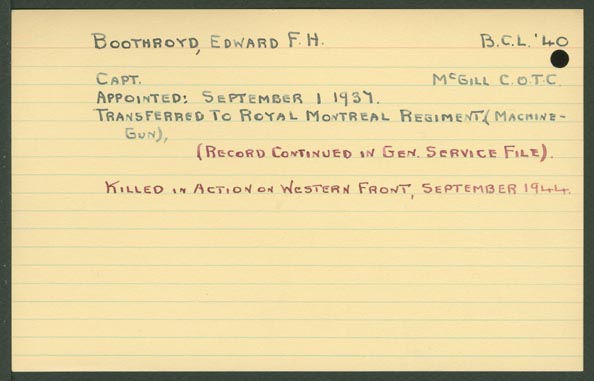 BOOTHROYD, EDWARD F. H. B.C.L. '40
CAPT. McGILL C.O.T.C.
APPOINTED: SEPTEMBER 1 1937.
TRANSFERRED TO ROYAL MONTREAL REGIMENT (MACHINE-
GUN),
(RECORD CONTINUED IN GEN. SERVICE FILE).
KILLED IN ACTION ON WESTERN FRONT, SEPTEMBER 1944.